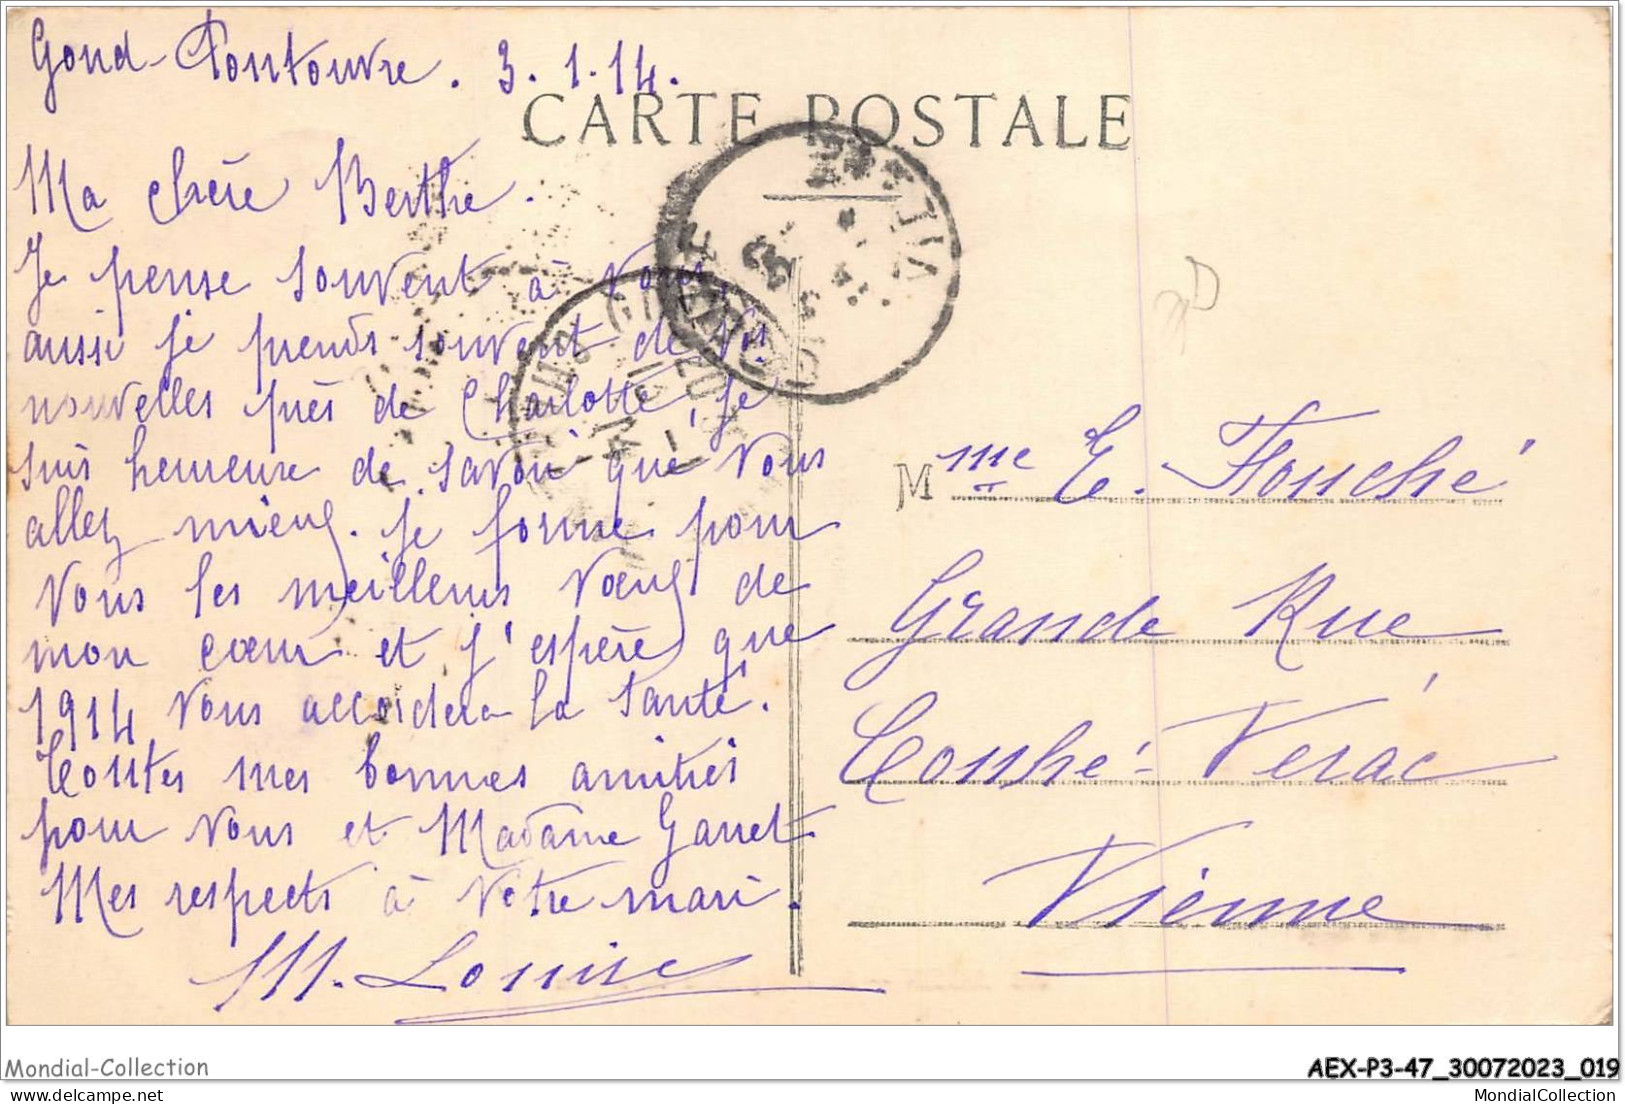 Gond-Pontouvre. 3.1.14.
CARTE POSTALE
Ma chère Berthe.
Je pense souvent à vous,
aussi je prends souvent de vos
nouvelles près de Charlotte, je
suis heureuse de savoir que vous
allez mieux. Je forme pour
vous les meilleurs vœux de
mon cœur et j'espère que
1914 vous accordera la santé.
Toutes mes bonnes amitiés
pour vous et Madame Ganet.
Mes respects à votre mari.
M. Louise
Mme E. Fouché
Grande Rue
Couhé-Vérac
Vienne
Mondial-Collection
AEX-P3-47_30072023_019
MondialCollection